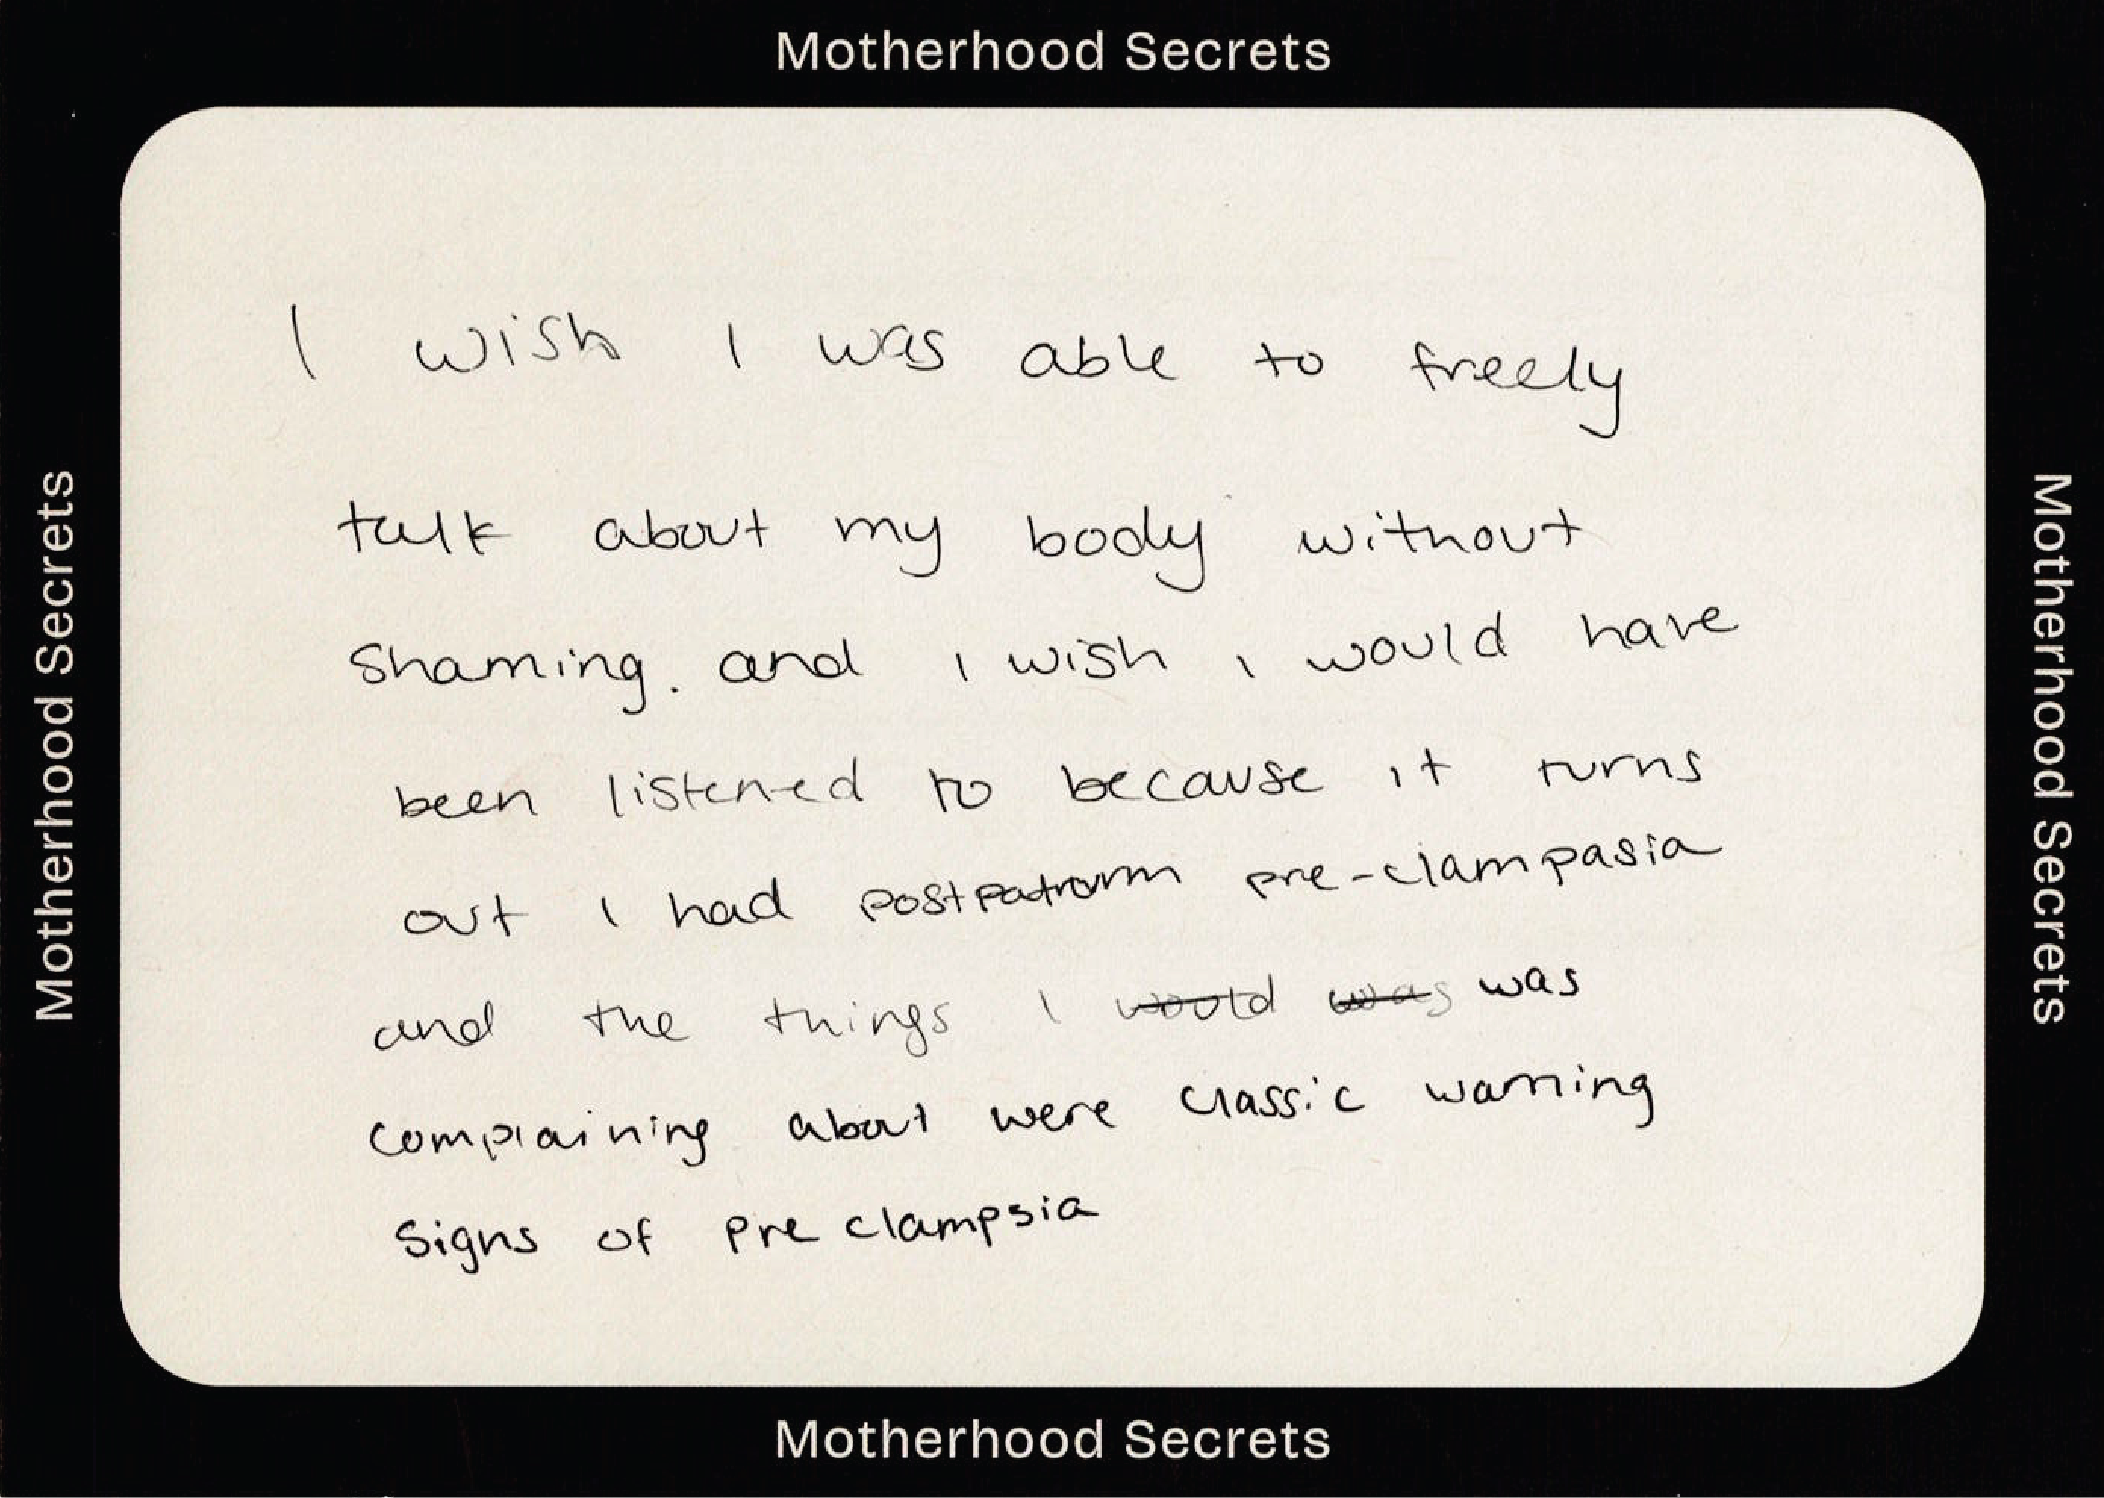 Motherhood Secrets
Motherhood Secrets
I wish I was able to freely
talk about my body without
shaming. and I wish I would have
been listened to because it turns
out I had postpatrorm pre-clampasia
and the things I would was was
complaining about were classic warning
signs of pre clampsia
Motherhood Secrets
Motherhood Secrets